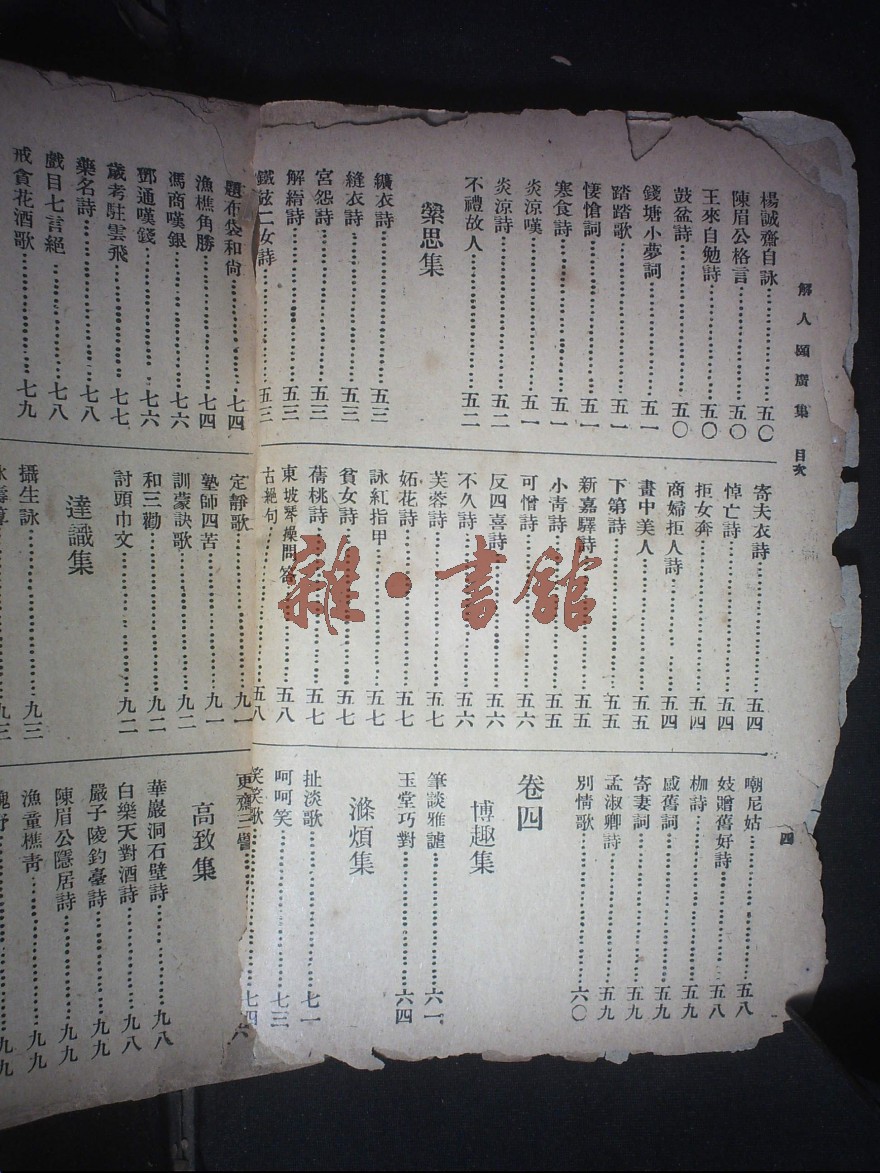 解人頤廣集 目次
四
楊誠齋自詠⋯⋯五〇
陳眉公格言⋯⋯五〇
王來自勉詩⋯⋯五〇
鼓盆詩⋯⋯五〇
錢塘小夢詞⋯⋯五一
踏踏歌⋯⋯五一
悽愴詞⋯⋯五一
寒食詩⋯⋯五一
炎涼嘆⋯⋯五一
炎涼詩⋯⋯五二
不禮故人⋯⋯五二
縈思集
纊衣詩⋯⋯五三
縫衣詩⋯⋯五三
宮怨詩⋯⋯五三
解縉詩⋯⋯五三
鐵鉉二女詩⋯⋯五三
寄夫衣詩⋯⋯五四
悼亡詩⋯⋯五四
拒女奔⋯⋯五四
商婦拒人詩⋯⋯五四
畫中美人⋯⋯五五
下第詩⋯⋯五五
新嘉驛詩⋯⋯五五
小靑詩⋯⋯五五
可憎詩⋯⋯五六
反四喜詩⋯⋯五六
不久詩⋯⋯五六
芙蓉詩⋯⋯五七
妬花詩⋯⋯五七
詠紅指甲⋯⋯五七
貧女詩⋯⋯五七
蒨桃詩⋯⋯五七
東坡琴操問答⋯⋯五八
古絕句⋯⋯五八
嘲尼姑⋯⋯五八
妓贈舊好詩⋯⋯五八
枷詩⋯⋯五九
感舊詞⋯⋯五九
寄妻詞⋯⋯五九
孟淑卿詩⋯⋯五九
別情歌⋯⋯六〇
卷四
博趣集
筆談雅謔⋯⋯六一
玉堂巧對⋯⋯六四
滌煩集
扯淡歌⋯⋯七一
呵呵笑⋯⋯七三
笑笑歌⋯⋯七四
題布袋和尙⋯⋯七四
漁樵角勝⋯⋯七四
馮商嘆銀⋯⋯七六
鄧通嘆錢⋯⋯七六
歲考駐雲飛⋯⋯七七
藥名詩⋯⋯七八
戲目七言絕⋯⋯七八
戒貪花酒歌⋯⋯七九
定靜歌⋯⋯九一
塾師四苦⋯⋯九一
訓蒙訣歌⋯⋯九二
和三勸⋯⋯九二
討頭巾文⋯⋯九二
達識集
攝生詠⋯⋯九三
高致集
華巖洞石壁詩⋯⋯九八
白樂天對酒詩⋯⋯九八
嚴子陵釣臺詩⋯⋯九九
陳眉公隱居詩⋯⋯九九
漁童樵靑⋯⋯九九
雜·書館